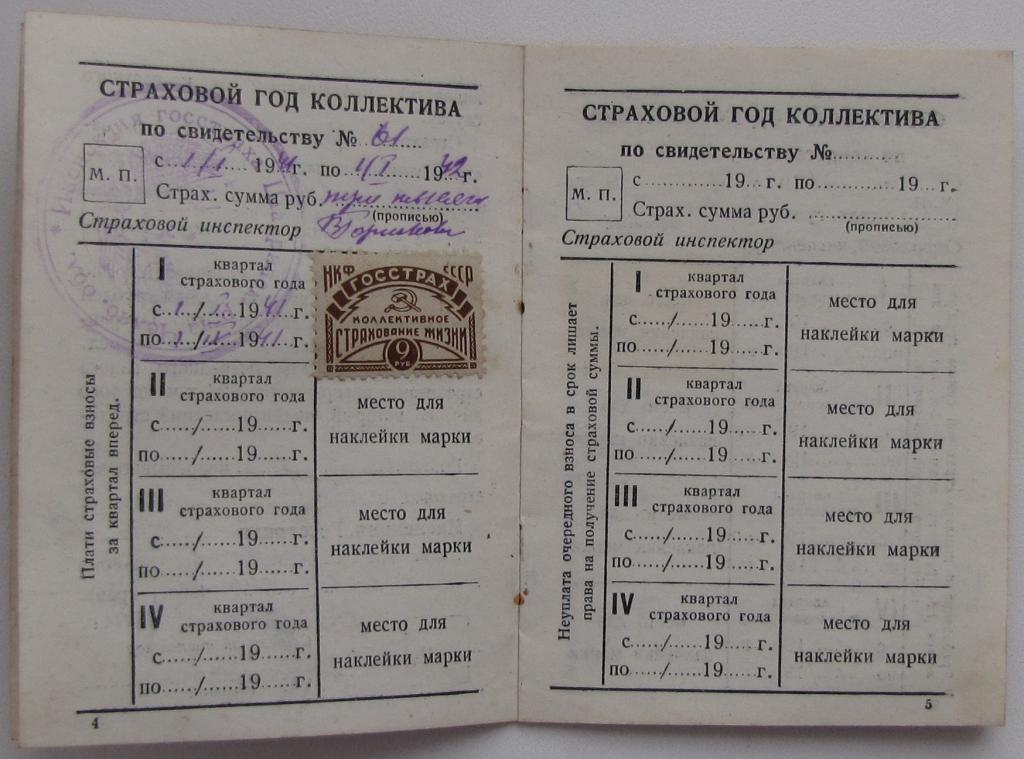 СТРАХОВОЙ ГОД КОЛЛЕКТИВА
по свидетельству № 61
М. П.
с 1/VI 1941г. по 1/VI 1942г.
Страх. сумма руб.
(прописью)
Страховой инспектор
Плати страховые взносы
за квартал вперед.
I квартал
страхового года
с 1/VI 1941 г.
по 1/IX 1941 г.
НКФ СССР
ГОССТРАХ
КОЛЛЕКТИВНОЕ
СТРАХОВАНИЕ ЖИЗНИ
9
РУБ
II квартал
страхового года
с...../......19.....г.
по...../......19.....г.
место для
наклейки марки
III квартал
страхового года
с...../......19.....г.
по...../......19.....г.
место для
наклейки марки
IV квартал
страхового года
с...../......19.....г.
по...../......19.....г.
место для
наклейки марки
4
СТРАХОВОЙ ГОД КОЛЛЕКТИВА
по свидетельству №..........
М. П.
с ............19... г. по ............19... г.
Страх. сумма руб. ....................
(прописью)
Страховой инспектор
Неуплата очередного взноса в срок лишает
права на получение страховой суммы.
I квартал
страхового года
с...../......19.....г.
по...../......19.....г.
место для
наклейки марки
II квартал
страхового года
с...../......19.....г.
по...../......19.....г.
место для
наклейки марки
III квартал
страхового года
с...../......19.....г.
по...../......19.....г.
место для
наклейки марки
IV квартал
страхового года
с...../......19.....г.
по...../......19.....г.
место для
наклейки марки
5